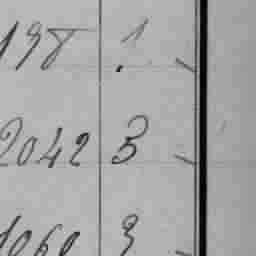 198 1
2042 3
1060 3